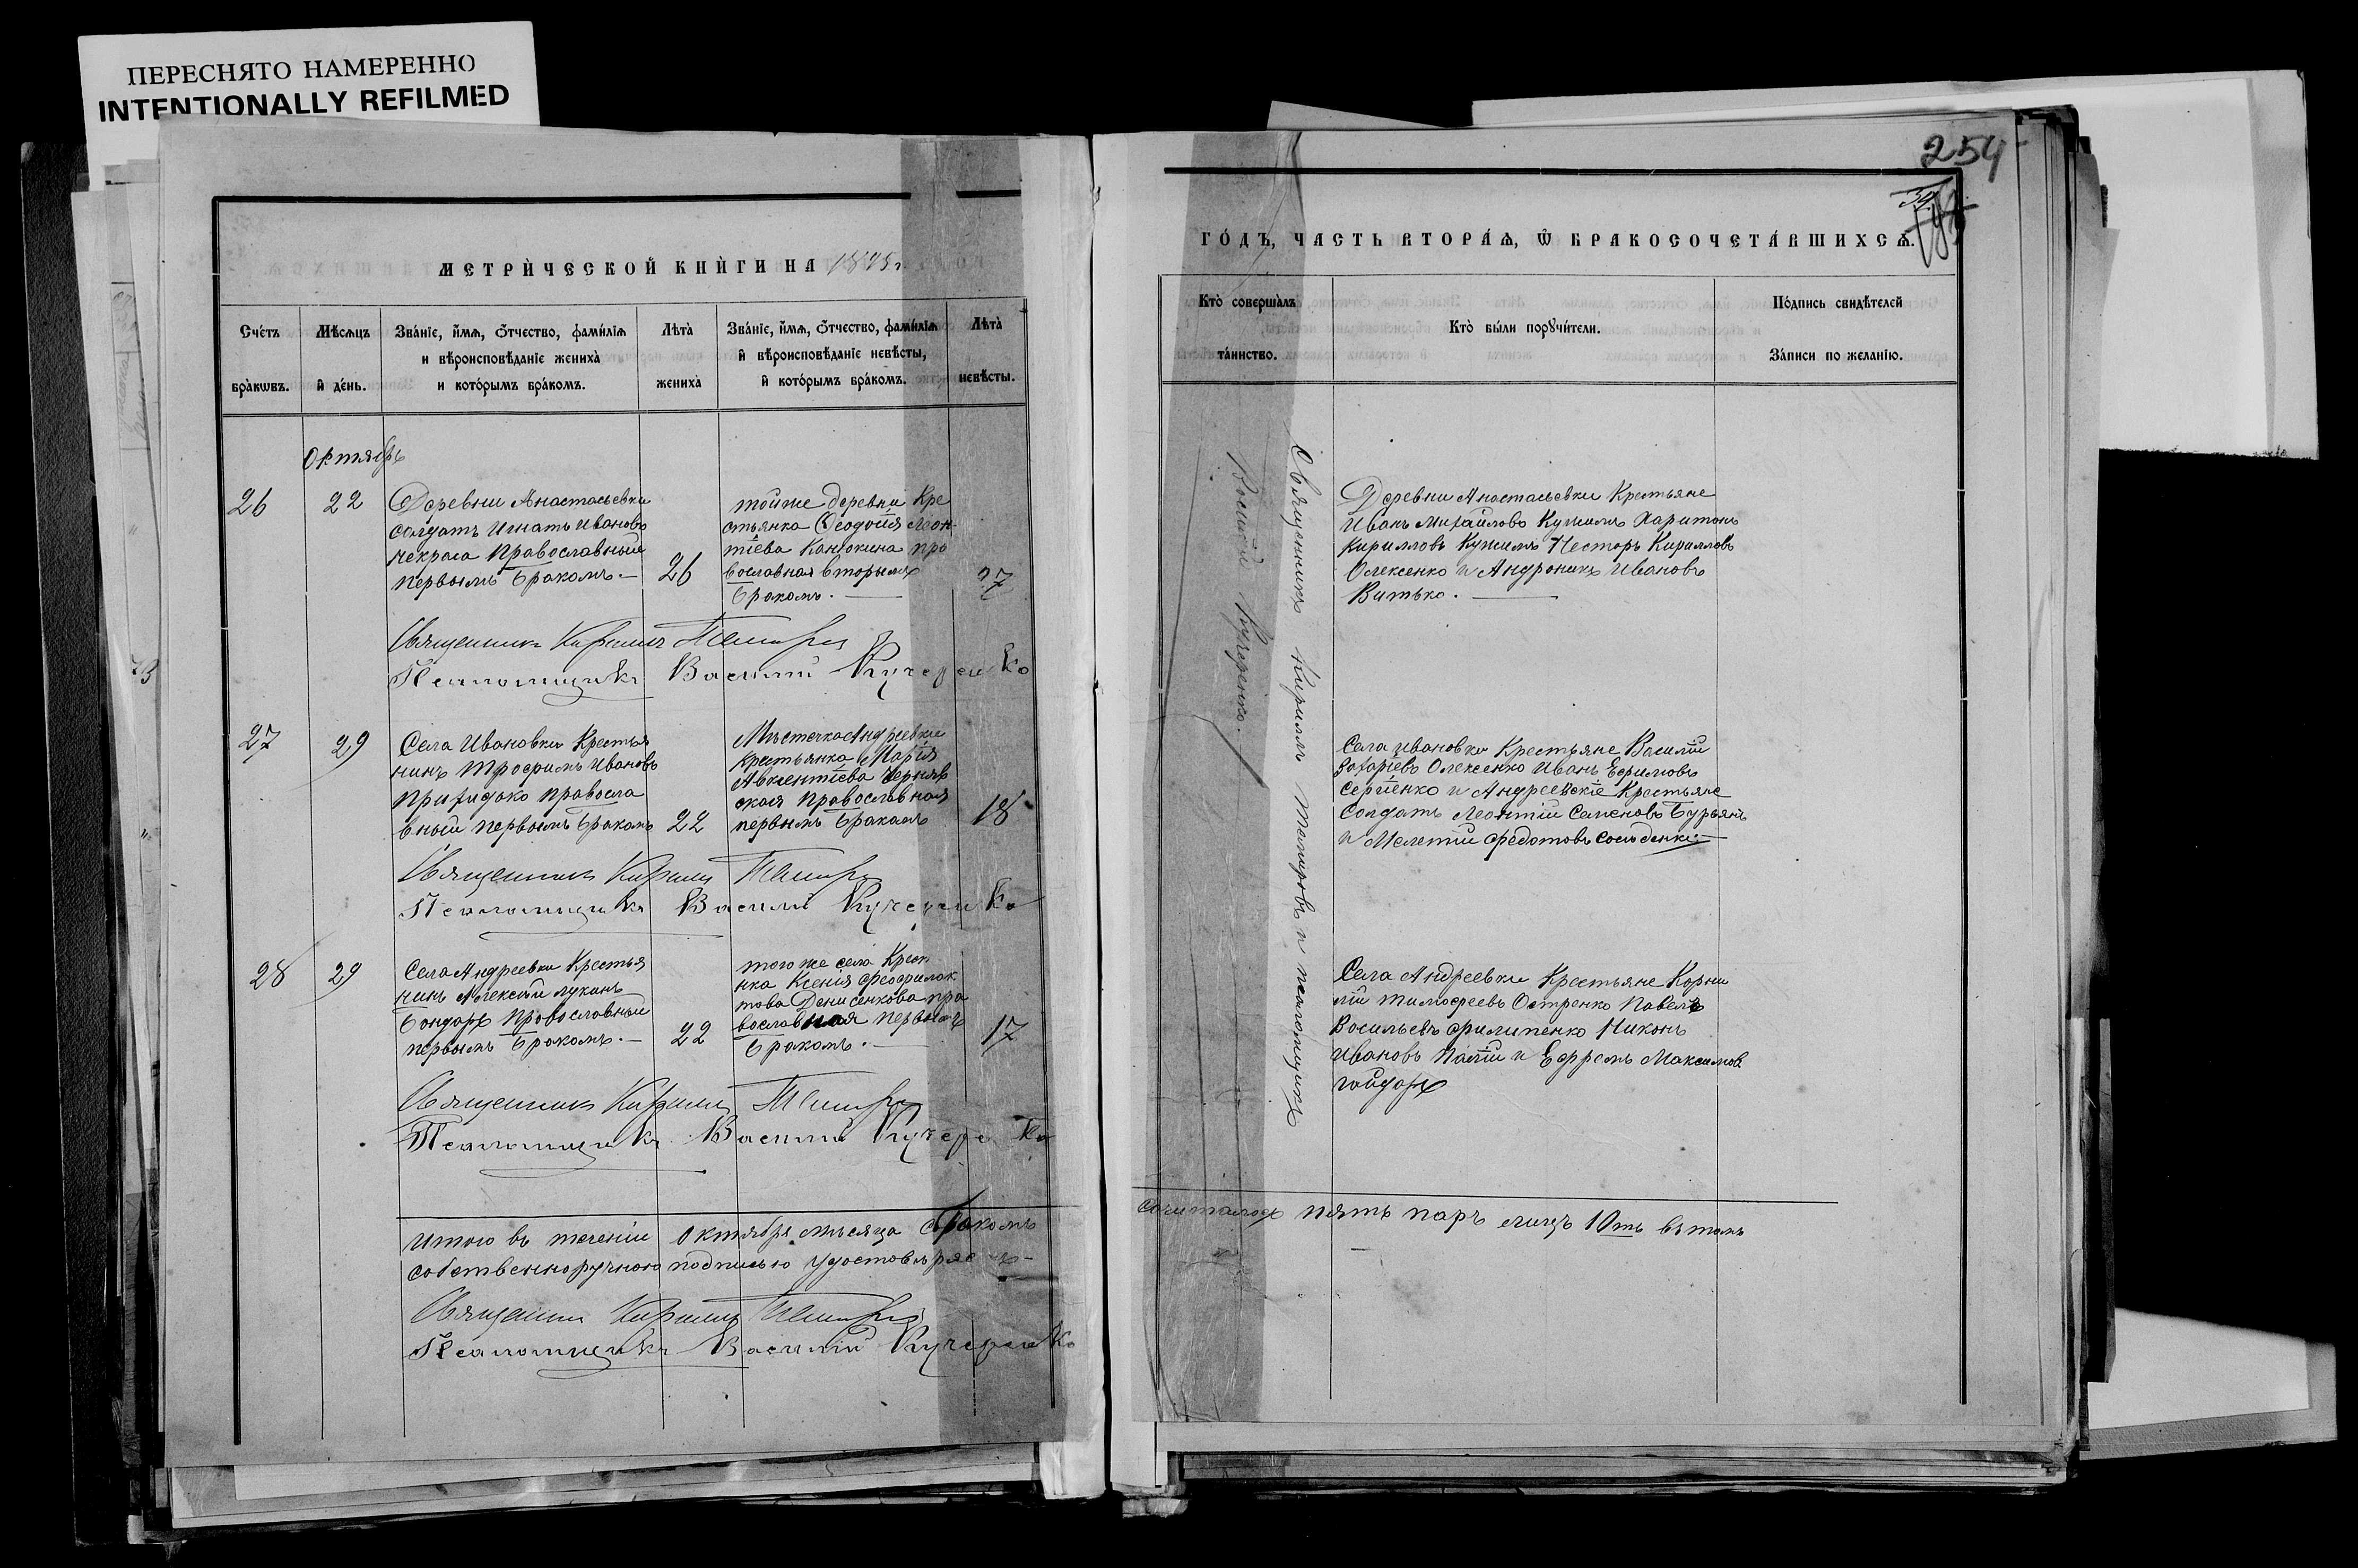 ПЕРЕСНЯТО НАМЕРЕННО
INTENTIONALLY REFILMED
МЕТРИ́ЧЕСКОЙ КНИ́ГИ НА
Сче́тъ бра́кѡвъ.
Мѣ́сѧцъ и҆ де́нь.
Зва́нїе, и҆́мѧ, Ѻ҆́тчество, фами́лїѧ
и вѣроисповѣ́данїе жениха̀
и кото́рымъ бра́комъ.
Лѣта̀ жениха̀
Зва́нїе, и҆́мѧ, Ѻ҆́тчество, фами́лїѧ
и҆ вѣроисповѣ́данїе невѣ́сты,
и҆ кото́рымъ бра́комъ.
Лѣта̀ невѣ́сты.
Октябрь
26
22
Деревни Анастасьевки
солдатъ Игнатъ Ивановъ
Некраса Православный
первымъ бракомъ. —
26
тойже деревни Кре
стьянка Ѳеодосія Леон-
тіева Канюкина пра
вославная вторымъ
бракомъ. —
27
Священникъ Кириллъ
Псаломщикъ Василій Кучеренко
27
29
Села Ивановки Крестья
нинъ Трофимъ Ивановъ
Приходько правосла
вный первымъ бракомъ
22
Мѣстечка Андреевки
крестьянка Марія
Авксентіева Черняв
ская православная
первымъ бракомъ
18
Священникъ Кириллъ
Псаломщикъ Василій Кучеренко
28
29
Села Андреевки Крестья
нинъ Алексѣй Лукинъ
Бондарь Православный
первымъ бракомъ. —
22
того же села Крест
нка Ксенія Феофилак
това Денисенкова пра
вославная первымъ
бракомъ. —
17
Священникъ Кириллъ
Псаломщикъ Василій Кучеренко
Итого въ теченіи Октября мѣсяца бракомъ
собственноручною подписью удостовѣряемъ —
Священникъ Кириллъ
Псаломщикъ Василій Кучеренко
254
ГО́ДЪ, ЧА́СТЬ ВТОРА́Ѧ, Ѡ҆ БРАКОСОЧЕТА́ВШИХСѦ.
Кто̀ соверша́лъ та́инство.
Кто̀ бы́ли порꙋчи́тели.
По́дпись свидѣ́телей
За́писи по жела́нїю.
Священникъ Кириллъ и псаломщикъ
Василій Кучеренко.
Деревни Анастасьевки Крестьяне
Иванъ Михайловъ Кужимъ Харитонъ
Кирилловъ Кужимъ Несторъ Кирилловъ
Олексенко и Андроникъ Ивановъ
Витько. —
Села Ивановки Крестьяне Василій
Захаріевъ Олексенко Иванъ Ефимовъ
Сергіенко и Андреевскіе Крестьяне
Солдатъ Леонтій Семеновъ Бурьянъ
и Мелетій Федотовъ
Села Андреевки Крестьяне Корни
лій Тимофеевъ Остренко Павелъ
Васильевъ Филипенко Никонъ
Ивановъ Палій и Ефремъ Максимовъ
Гайдарь
сочиталось пять паръ лицъ 10ть въ томъ